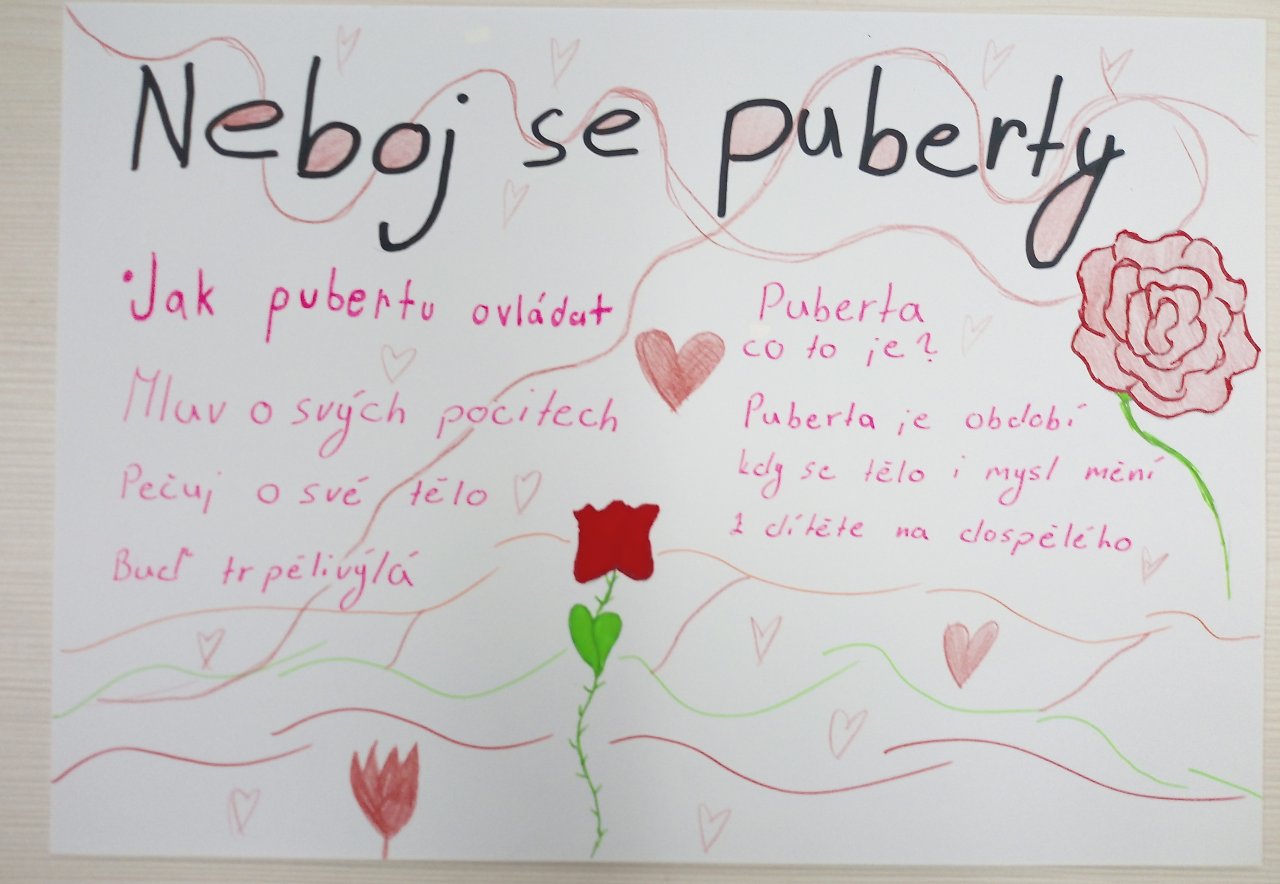 Neboj se puberty
•Jak pubertu ovládat
Mluv o svých pocitech
Pečuj o své tělo
Buď trpělivý/á
Puberta
co to je?
Puberta je období
kdy se tělo i mysl mění
z dítěte na dospělého